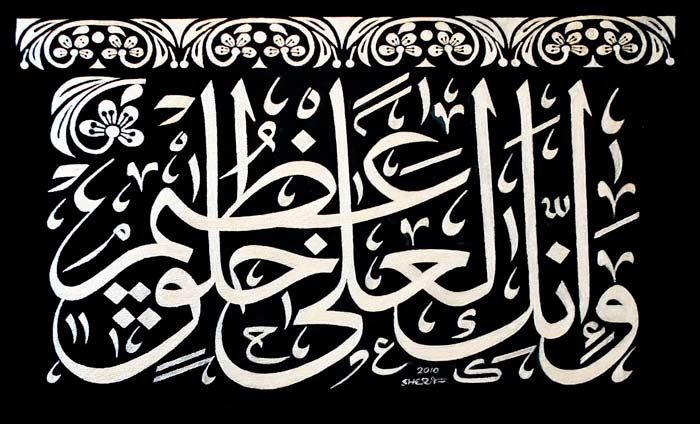 وَإِنَّكَ لَعَلَى خُلُقٍ عَظِيمٍ
2010
SHERIF